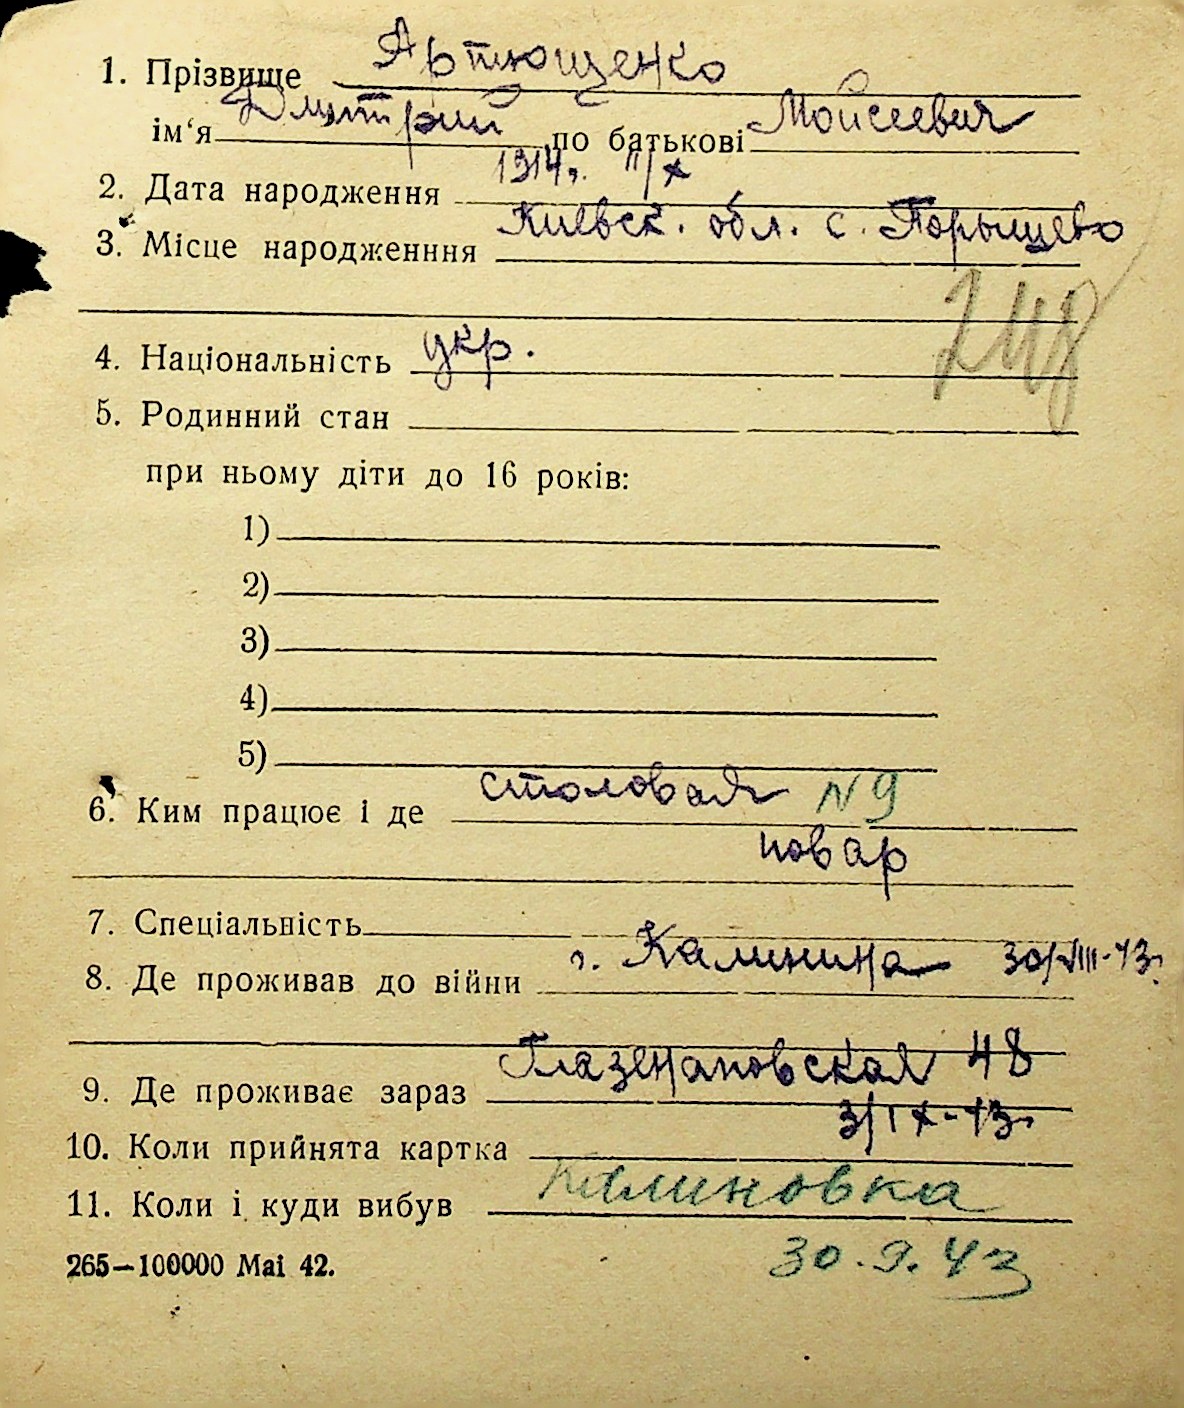 1. Прізвище Артющенко
ім‘я Дмитрий по батькові Мойсеевич
2. Дата народження 1914 г. II/X
3. Місце народженння Киевск. обл. с.
248
4. Національність укр.
5. Родинний стан
при ньому діти до 16 років:
1)
2)
3)
4)
5)
6. Ким працює і де столовая N 9
повар
7. Спеціальність
8. Де проживав до війни г. Калинина 30/VIII-43г.
9. Де проживає зараз Глазенаповская 48
10. Коли прийнята картка 3/IX-43г.
11. Коли і куди вибув Калиновка
30.9.43
265—100000 Mai 42.